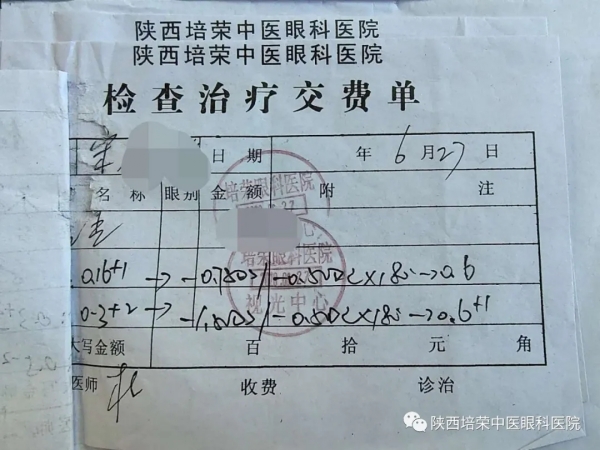 陕西培荣中医眼科医院
陕西培荣中医眼科医院
检查治疗交费单
日期 年 6 月 27 日
名称 眼别 金额 附注
培荣眼科医院
培荣眼科医院
视光中心
0.16+1 → -0.75DS/-0.50DC×185→0.6
0.3+2 → -1.50DS/-0.50DC×180→0.6+1
大写金额 百 拾 元 角
医师 杜 收费 诊治
陕西培荣中医眼科医院